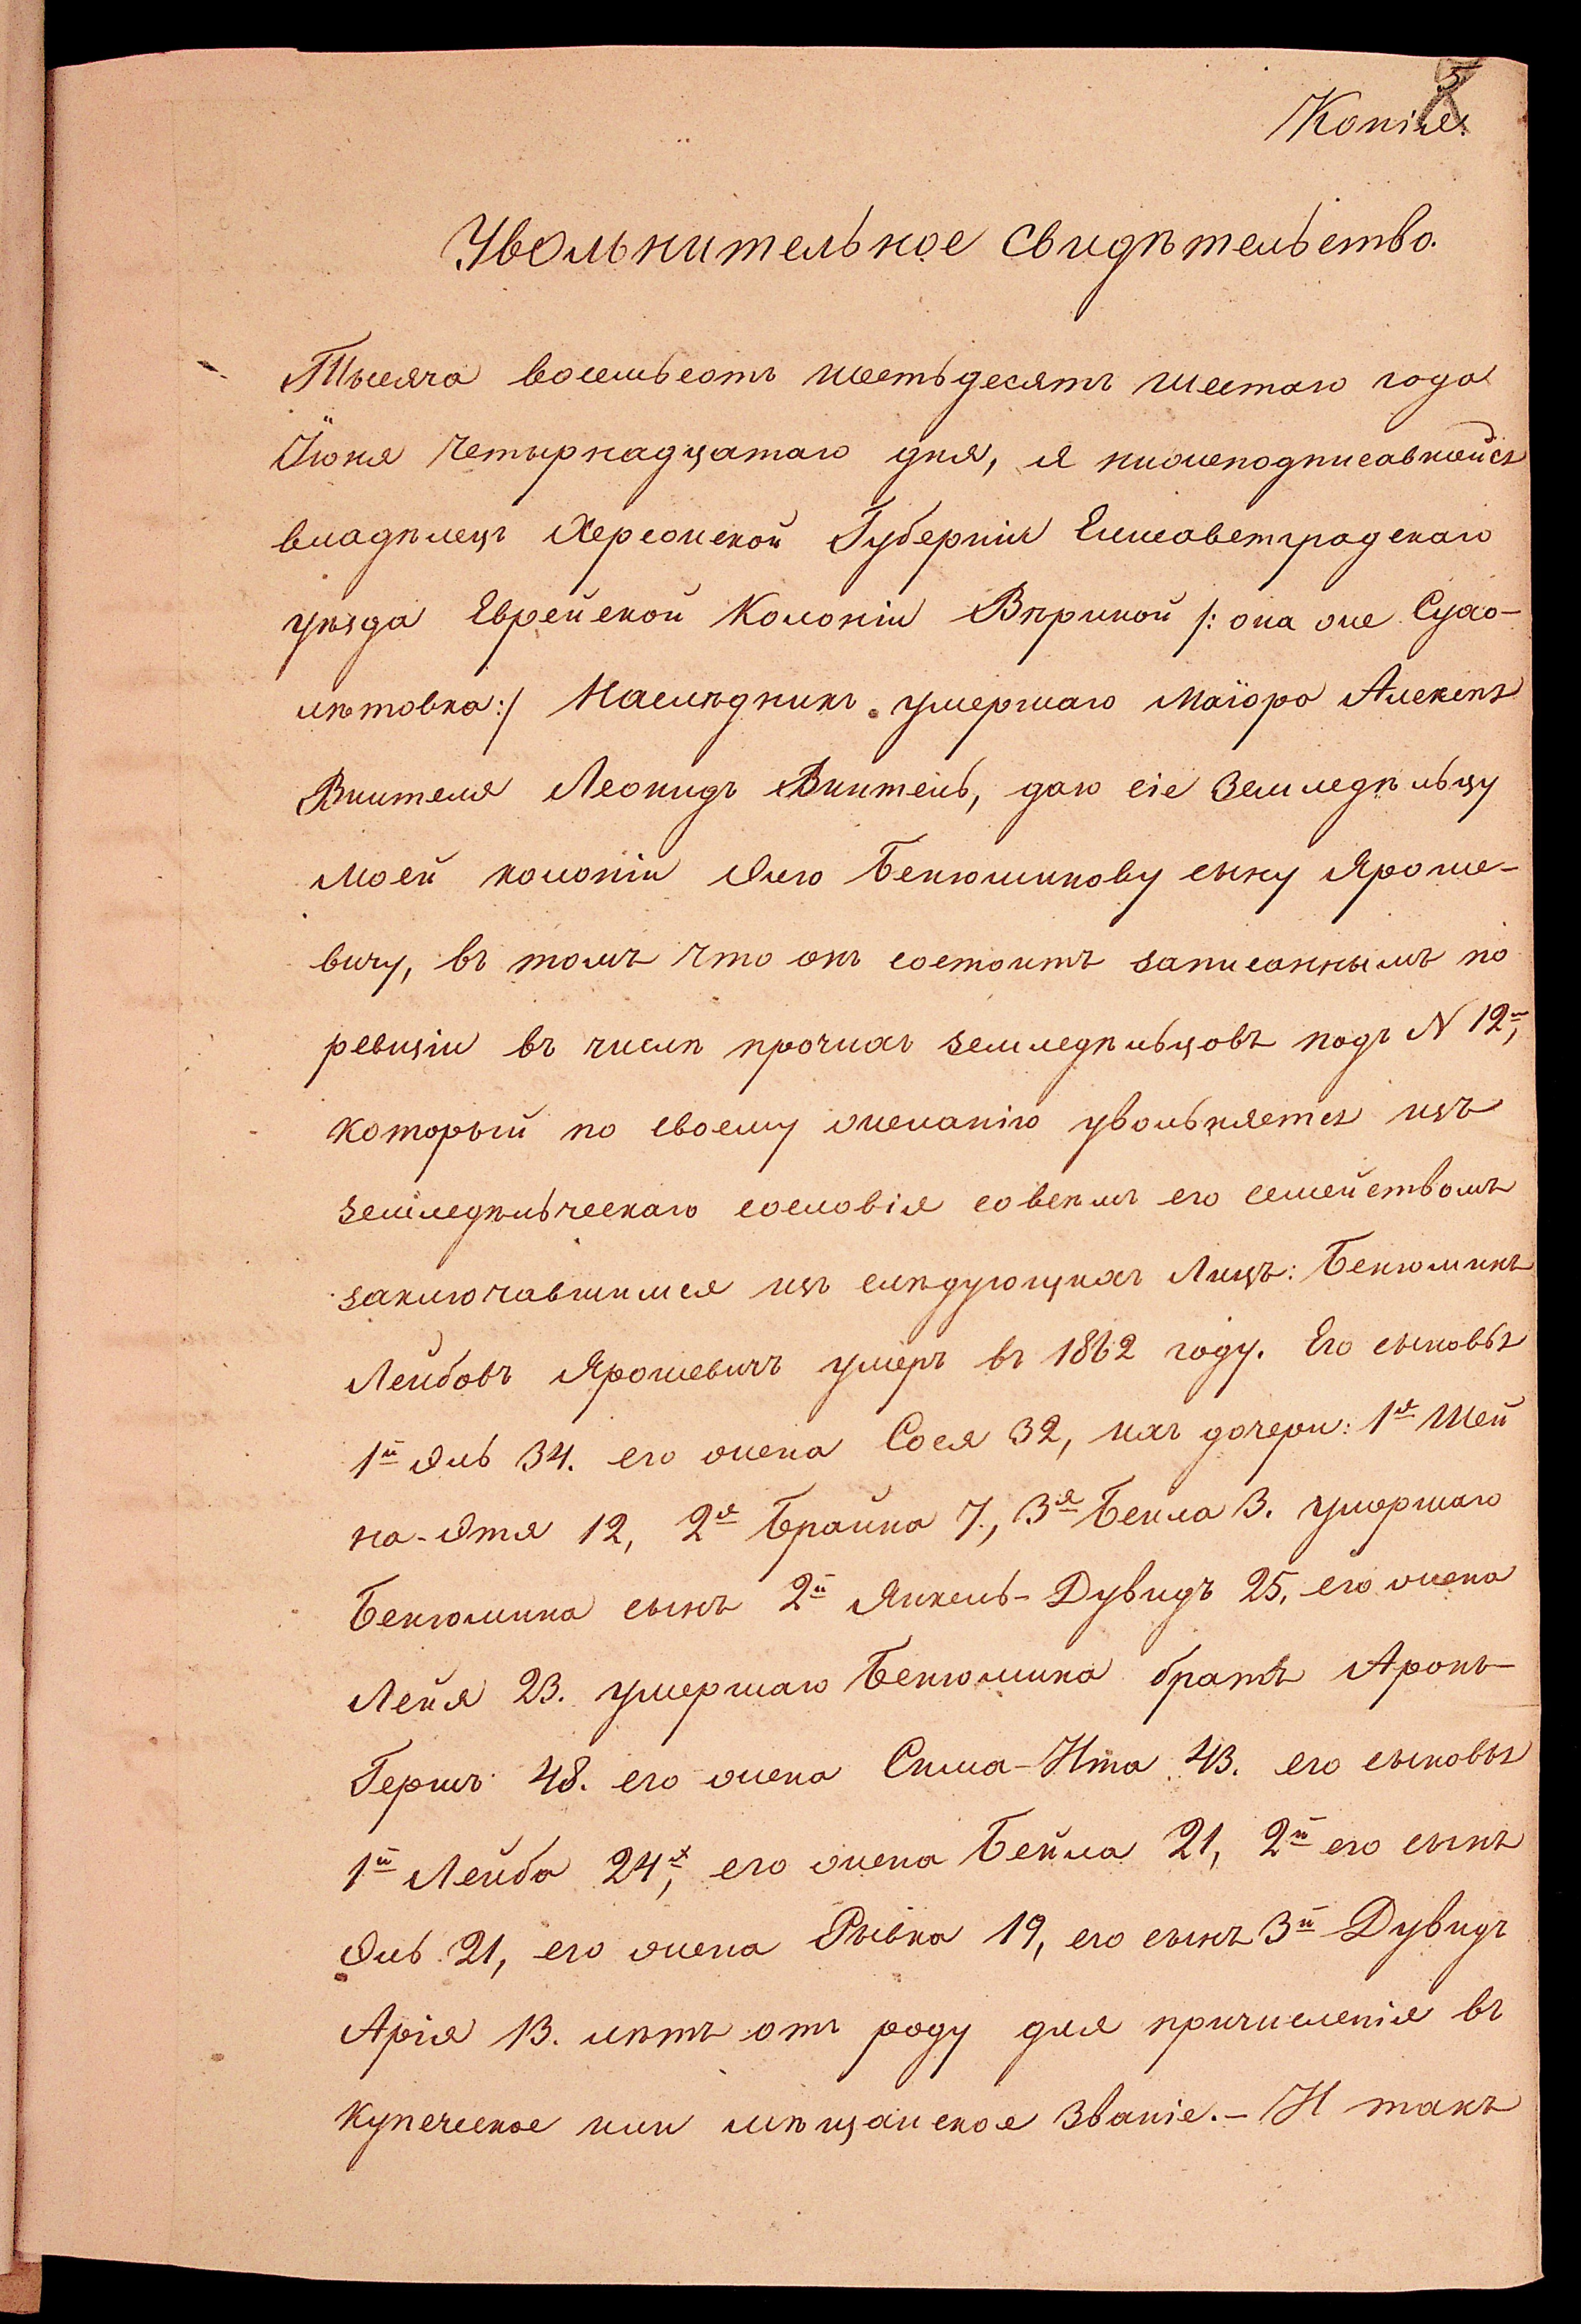 5
Копія.
Увольнительное свидѣтельство.
Тысяча восемьсотъ шестьдесятъ шестаго года
Іюня четырнадцатаго дня, я нижеподписавшійся
владѣлецъ Херсонской Губерніи Елисаветградскаго
уѣзда Еврейской Колоніи Вѣриной /: она же Сухо-
лѣтовка:/ Наслѣдникъ умершаго Маіора Алексѣя
Вентеля Леонидъ Вентель, даю сіе Земледѣльцу
моей колоніи Элю Бенюминову сыну Яроше-
вичу, въ томъ что онъ состоитъ записаннымъ по
ревизіи въ числѣ прочихъ земледѣльцовъ подъ N 12й,
который по своему желанію увольняется изъ
земледѣльческаго сословія совсѣмъ его семействомъ
заключавшимся изъ слѣдующихъ Лицъ: Бенюминъ
Лейбовъ Ярошевичъ умеръ въ 1862 году. Его сыновья
1й Эль 34. его жена Сося 32, ихъ дочери: 1я Шей
на-Этя 12, 2я Брайна 7, 3я Бейла 3. умершаго
Бенюмина сынъ 2й Янкель-Дувидъ 25, его жена
Лейя 23. умершаго Бенюмина братъ Аронъ-
Гершъ 48. его жена Сима-Ита 43. его сыновья
1й Лейба 24х, его жена Бейла 21, 2й его сынъ
Эль 21, его жена Рывка 19, его сынъ 3й Дувидъ
Арія 13. лѣтъ отъ роду для причисленія въ
купеческое или мѣщанское Званіе.- И такъ